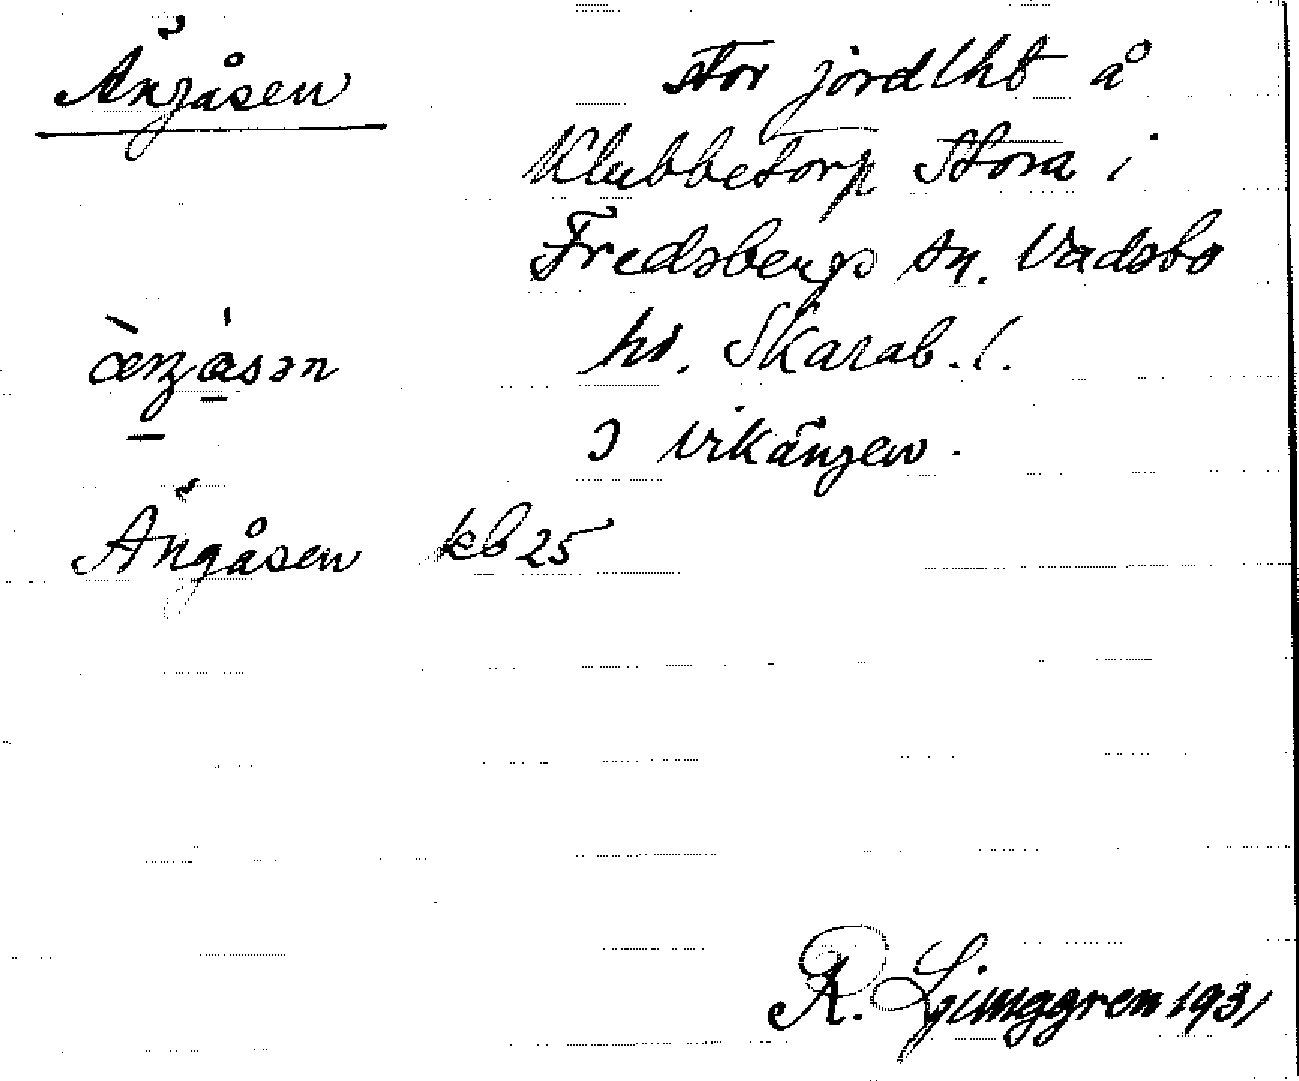 Ängåsen
stor jordlht å
Klubbetorp Stora i
Fredsbergs sn. Vadsbo
hd. Skarab. l.
I Vikängen.
Ängåsen kb 25
R. Ljunggren 1931